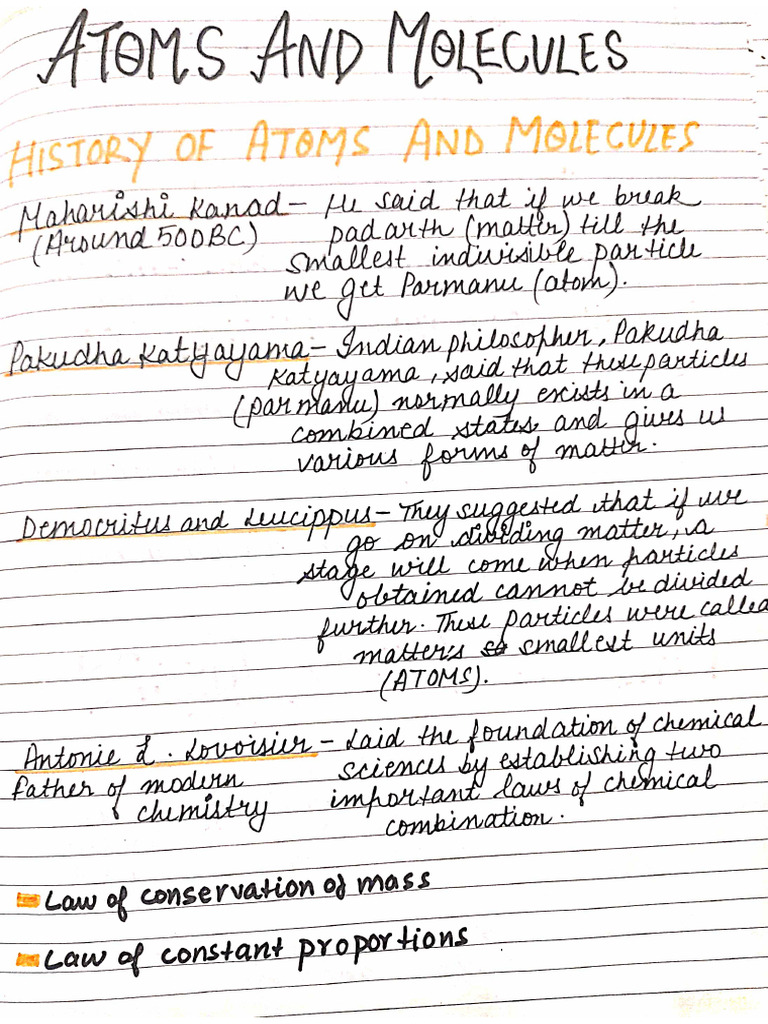 ATOMS AND MOLECULES
HISTORY OF ATOMS AND MOLECULES
Maharishi Kanad - He said that if we break
(Around 500BC) padarth (matter) till the
smallest indivisible particle
we get Parmanu (atom).
Pakudha Katyayama - Indian philosopher, Pakudha
Katyayama, said that these particles
(parmanu) normally exists in a
combined states and gives us
various forms of matter.
Democritus and Leucippus - They suggested that if we
go on dividing matter, a
stage will come when particles
obtained cannot be divided
further. These particles were called
matter's smallest units
(ATOMS).
Antonie L. Lovoisier - Laid the foundation of chemical
father of modern sciences by establishing two
chemistry important laws of chemical
combination.
Law of conservation of mass
Law of constant proportions